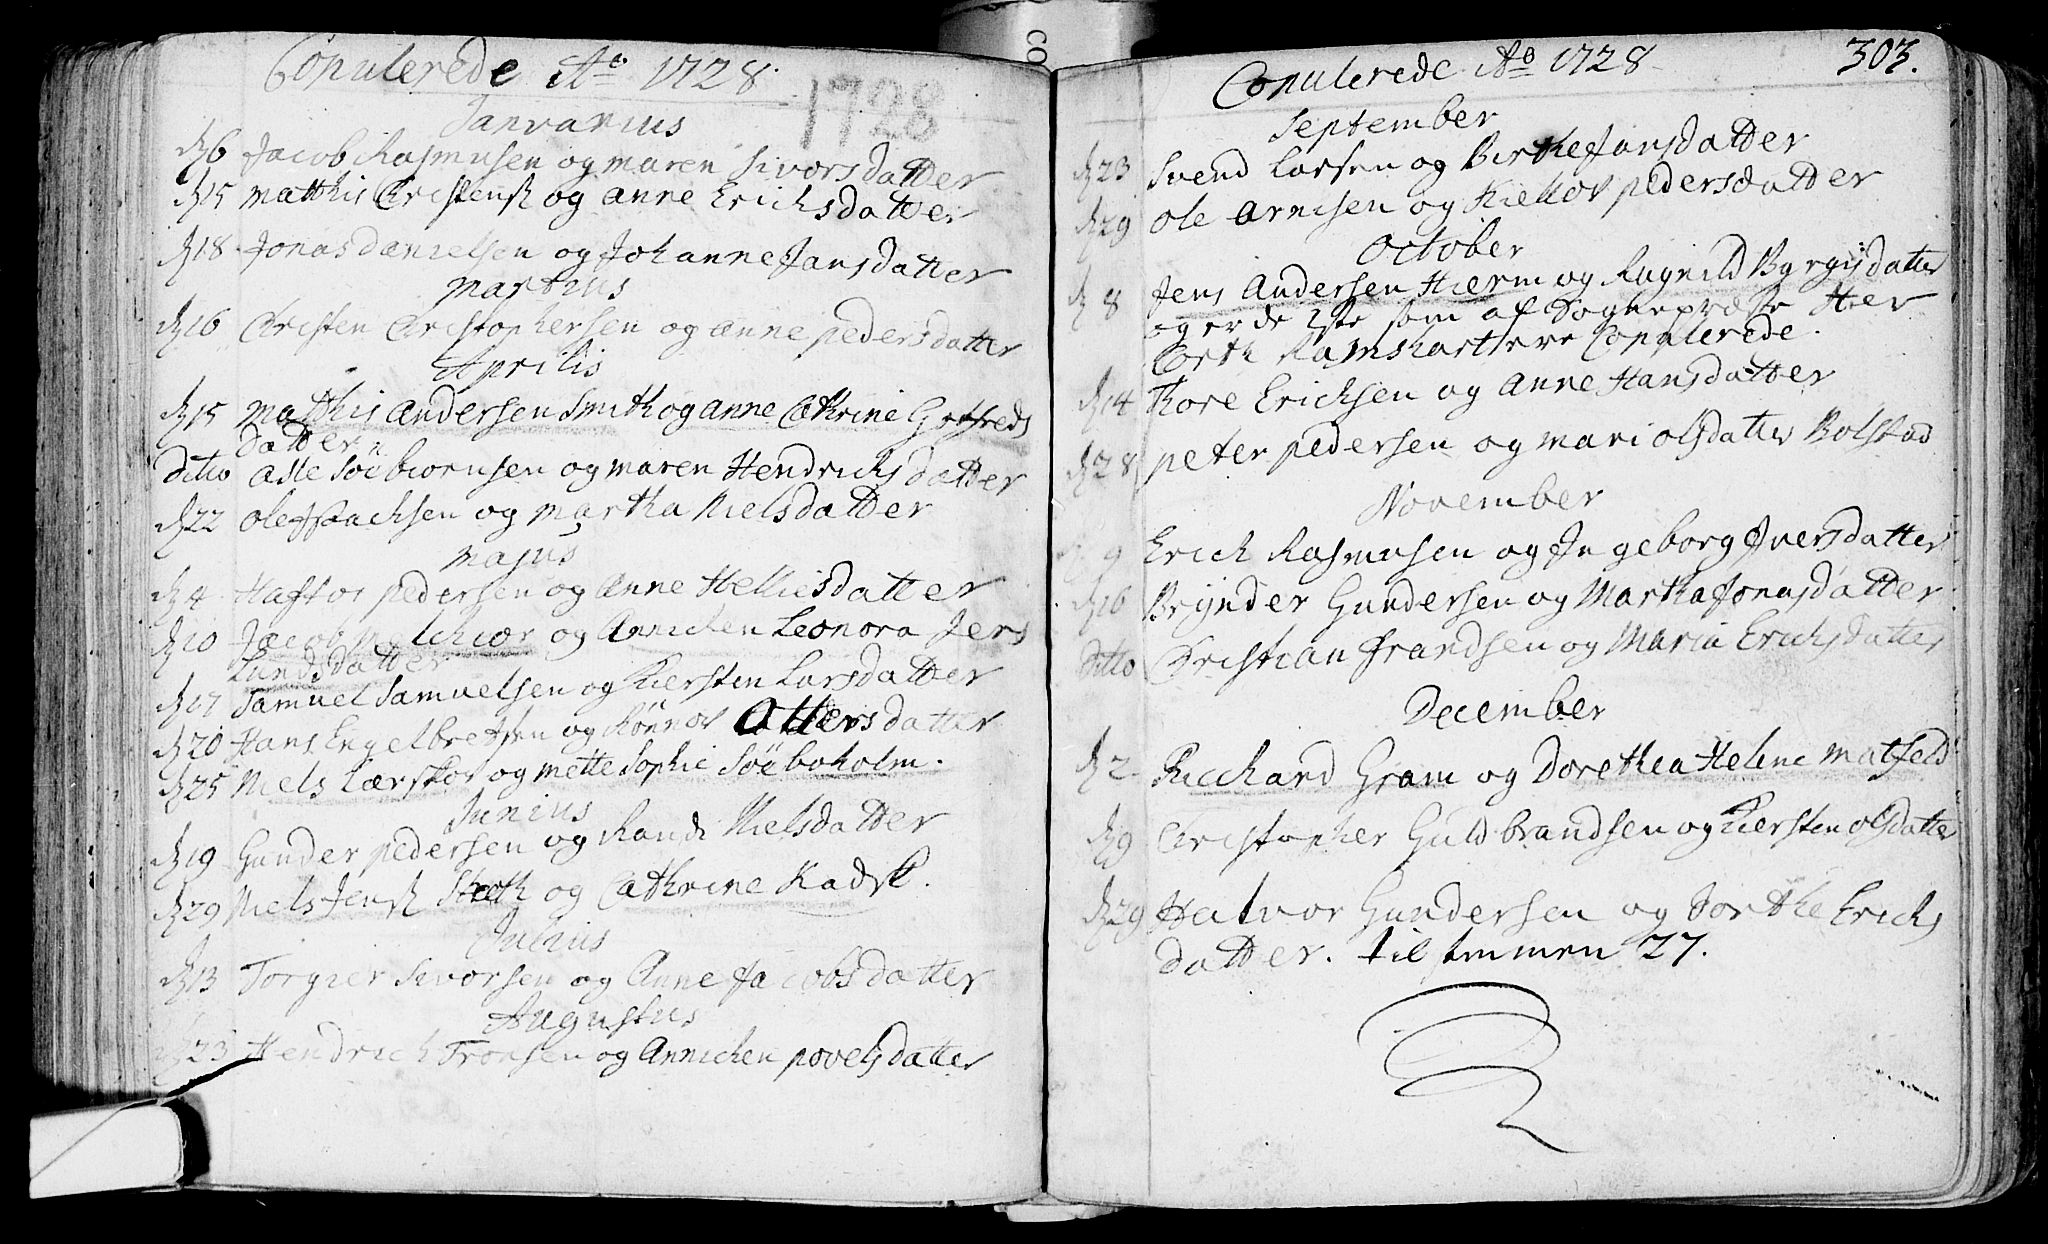 Copulerede Ao 1728.
1728
Januarius
d 6 Jacob Rasmusen og maren Sivorsdatter
d 15 Matthis Christens og Anne Erichsdatter
d 18 Jonas danielsen og Johanne Jansdatter
Martius
d 16 Christen Christophersen og Anne pedersdatter
Aprilis
d 15 Matthis Andersen Smith og Anne Cathrine Gotfreds
datter
ditto Asle Söebiornsen og maren Hendrichsdatter
d 22 Ole Isachsen og Martha Nielsdatter
Majus
d 4 Haftor pedersen og Anne Helliesdatter
d 10 Jacob Melchior og Annichen Leonora Jers
Lundsdatter
d 17 Samuel Samuelsen og Kiersten Larsdatter
d 20 Hans Engelbretsen og Rönnov Attersdatter
d 25 Niels Lærskov og Mette Sophie Söeboholm.
Junius
d 19 Gunder pedersen og Randi Nielsdatter
d 29 Niels Jens Steth og Cathrine Kads
Julius
d 13 Torgier Sivorsen og Anne Jacobsdatter
Augustus
d 23 Hendrich Tronsen og Annichen povelsdatter
Copulerede Ao 1728
303.
September
d 23 Svend Larsen og Birthe Jansdatter
d 29 Ole Arnesen og Kiellov pedersdatter
October
d 8 Jens Andersen Hierm og Ragnild Byrgisdatter
og er de 1ste som af Sognepræste Her
Corth Ramshart ere Copulerede.
d 14 Thore Ericksen og Anne Hansdatter
d 28 peter pedersen og mari olsdatter Bolstad
November
d 9 Erich Rasmusen og Ingeborg Iversdatter
d 16 Brynder Gundersen og Martha Jonasdatter
Ditto Christian Frandsen og Maria Erichsdatter
December
d 2 Richard Gram og Dorethea Helene Matfeld
d 9 Christopher Guldbrandsen og Kiersten olsdatter
d 29 Halvor Gundersen og Dorthe Erichs
datter. tilsammen 27.